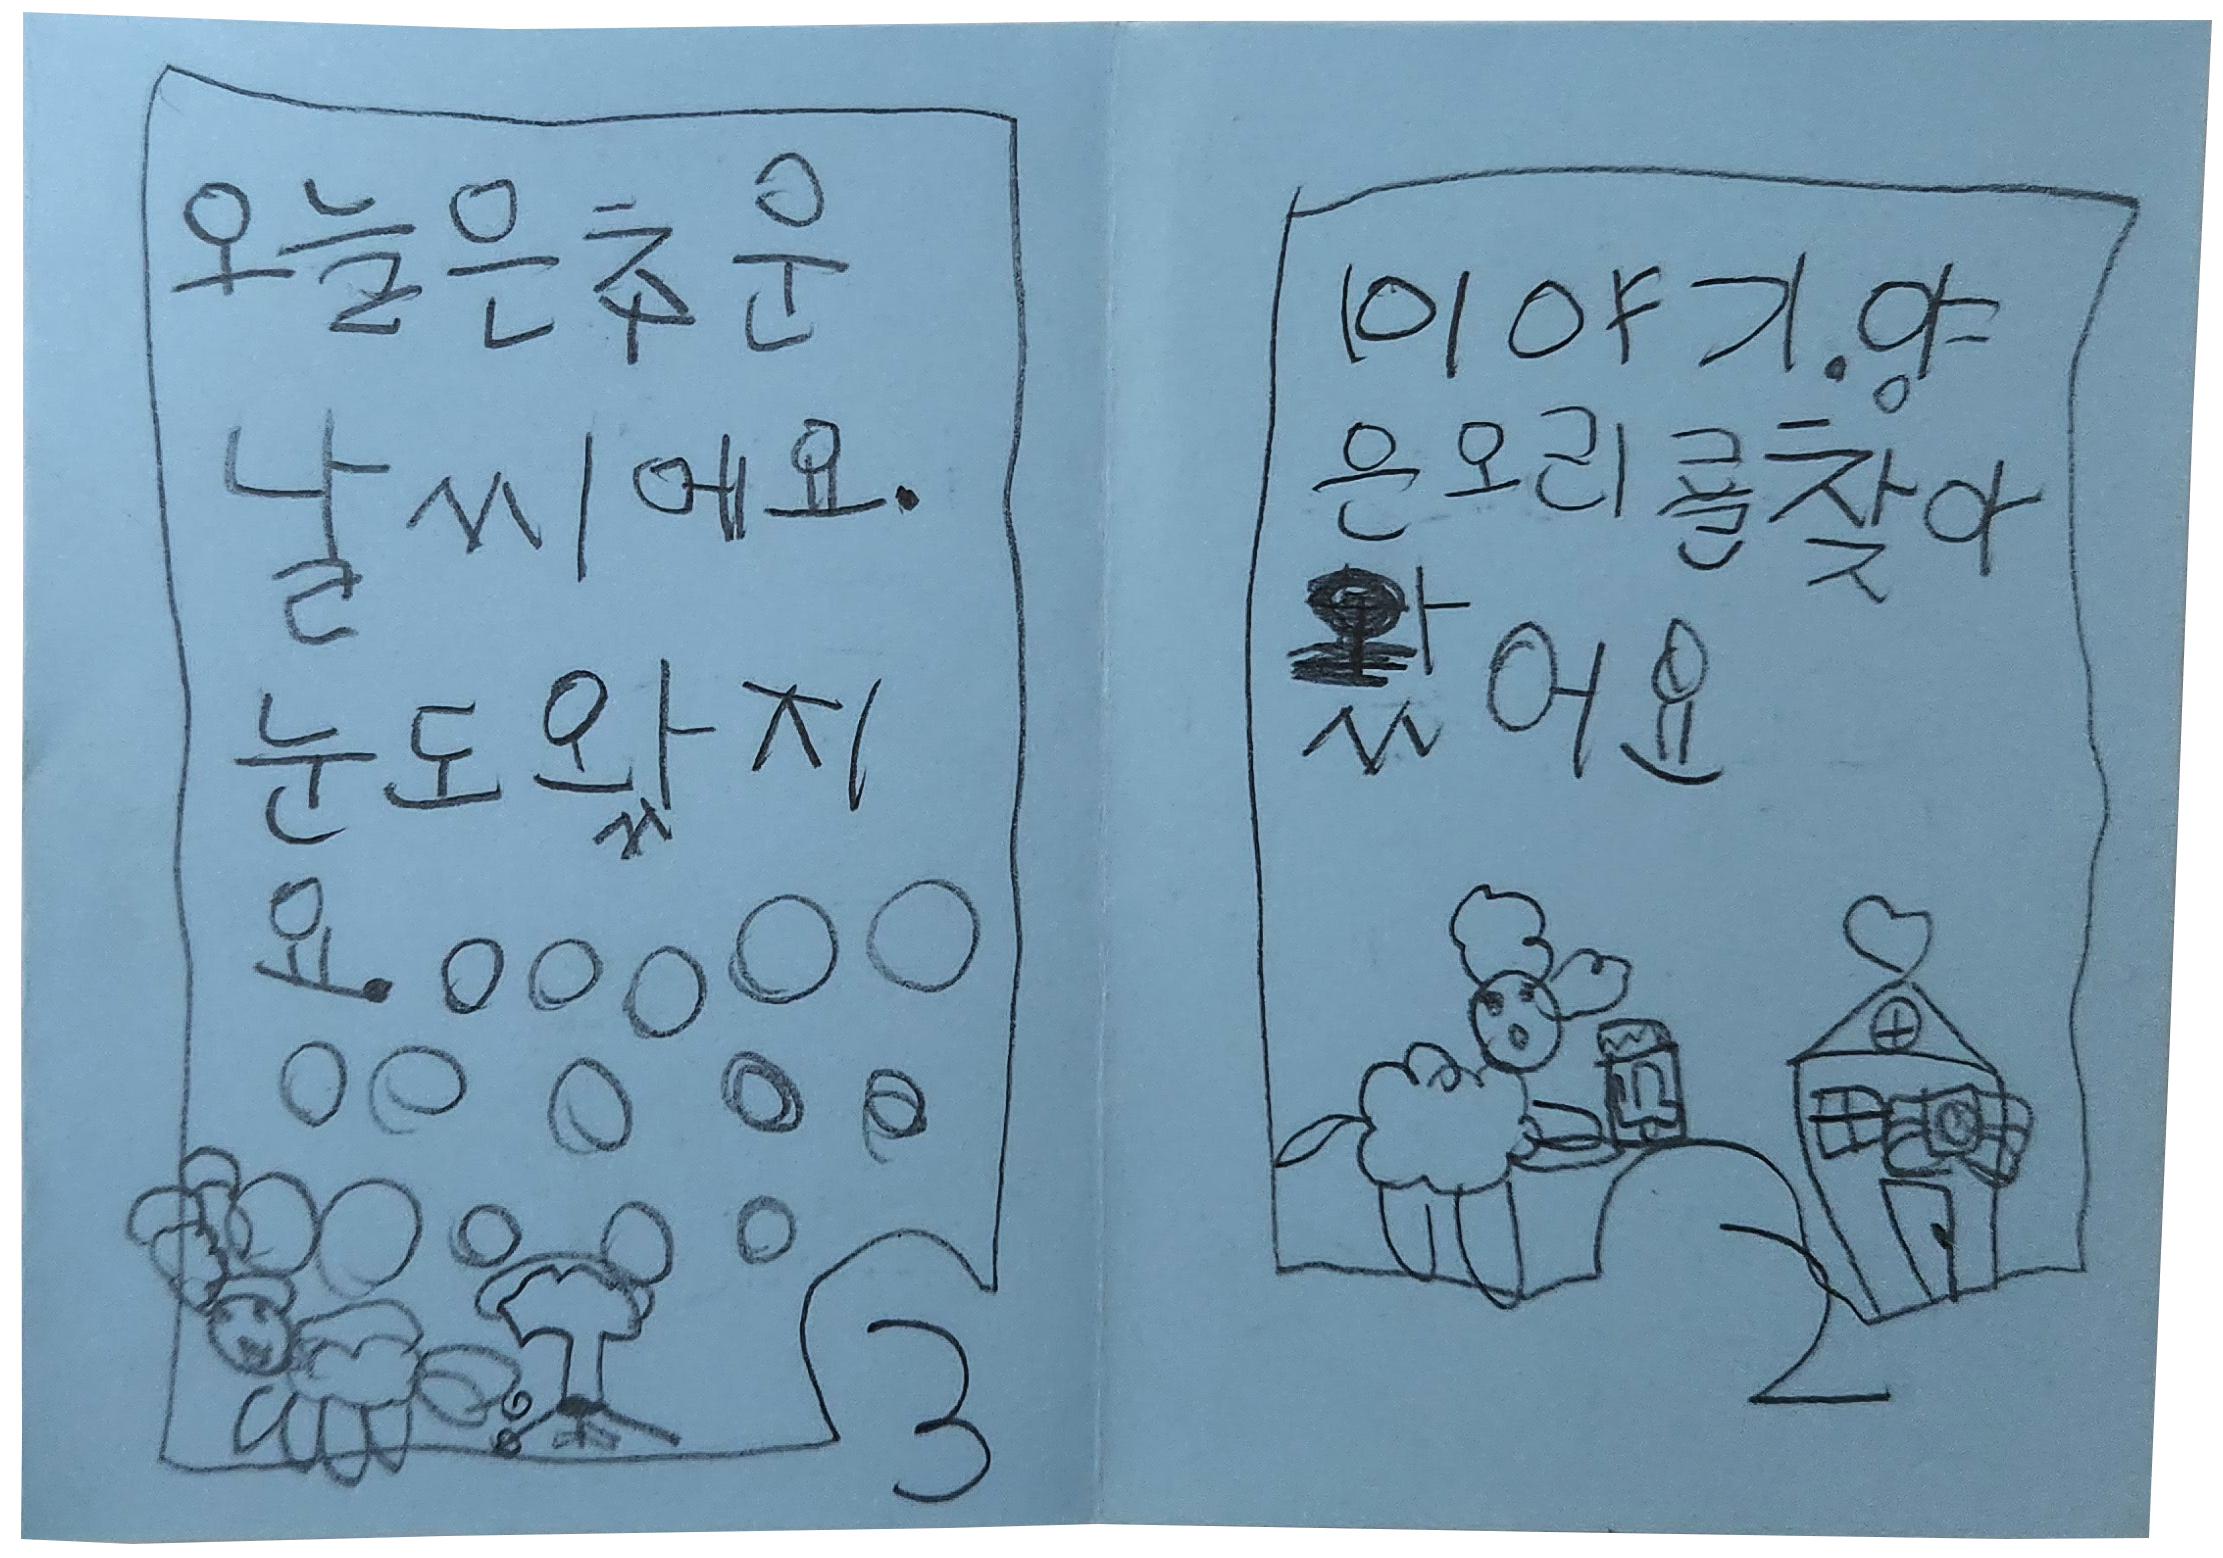 오늘은추운
날씨에요.
눈도왔지
요.
3
이야기.양
은오리를찾아
왔어요
2